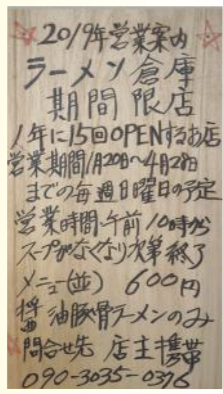 2019年営業案内
ラーメン倉庫
期間限店
1年に15回OPENするお店
営業期間1月20日〜4月28日
までの毎週日曜日の予定
営業時間 午前10時から
スープがなくなり次第終了
メニュー(並) 600円
醤油豚骨ラーメンのみ
問合せ先 店主携帯
090-3035-0376